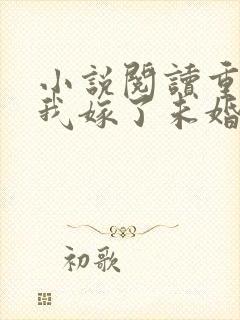 小說閱讀重
我嫁了未婚
初歌